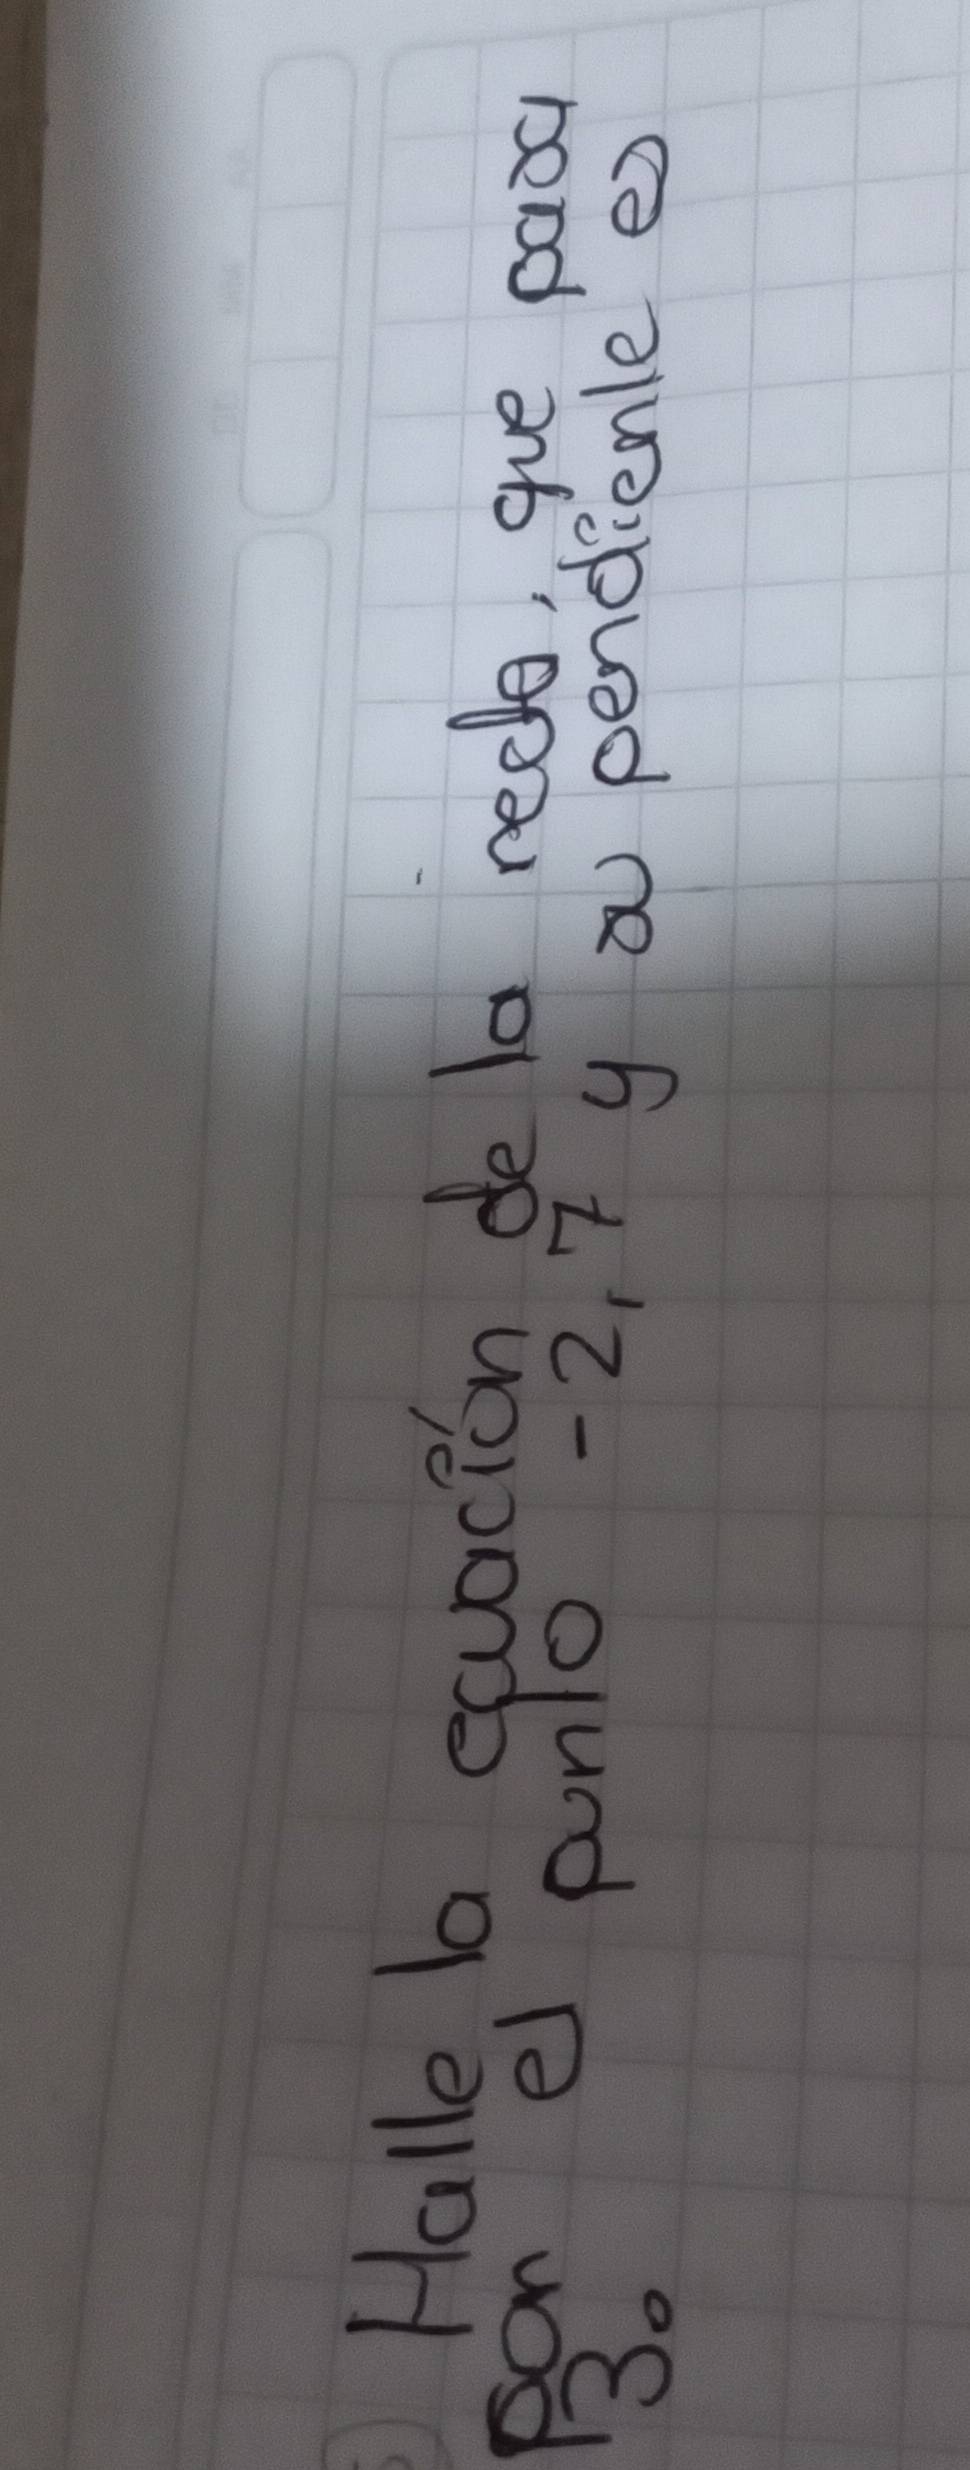 Halle la ecuación de la recta, que pasa
por el punto -2, 7 y su pendiente es
3.